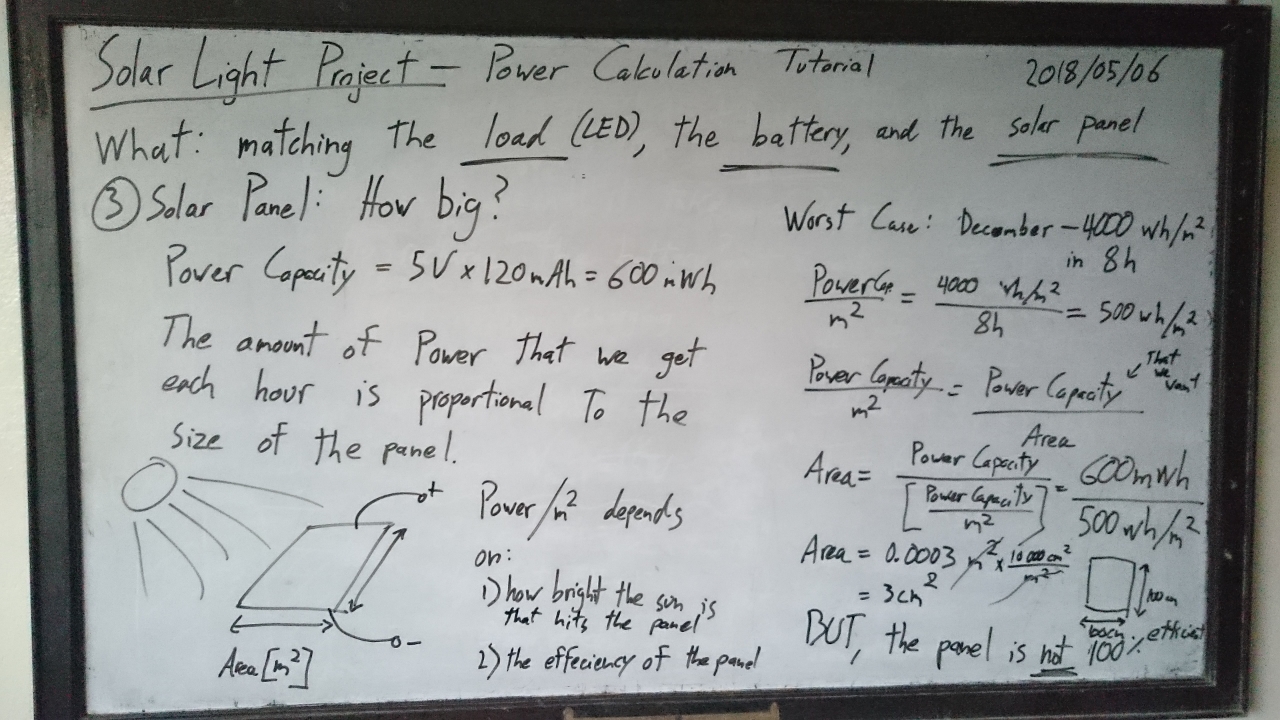 Solar Light Project - Power Calculation Tutorial 2018/05/06
What: matching the load (LED), the battery, and the solar panel
③ Solar Panel: How big?
Power Capacity = 5V x 120mAh = 600mWh
The amount of Power that we get
each hour is proportional To the
size of the panel.
o+
o-
Area [m²]
Power/m² depends
on:
1) how bright the sun is
that hits the panel
2) the effeciency of the panel
Worst Case: December - 4000 wh/m²
in 8h
Power Cap / m² = 4000 wh/m² / 8h = 500 wh/m²
Power Capacity / m² = Power Capacity / Area
That
we
want
Area = Power Capacity / [Power Capacity / m²] = 600mWh / 500 wh/m²
Area = 0.0003 m² x 10 000 cm² / m²
= 3cm²
100cm
100cm
BUT, the panel is not 100% efficient